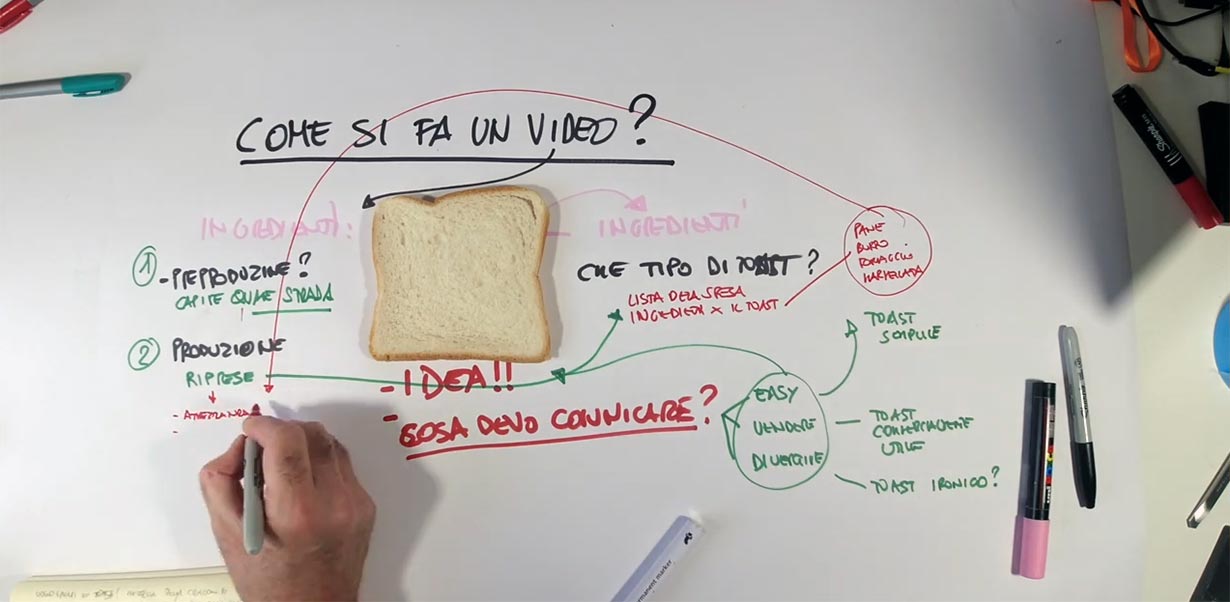 COME SI FA UN VIDEO?
INGREDIENTI:
INGREDIENTI
①
CHE TIPO DI TOAST?
LISTA DELLA SPESA
INGREDIENTI X IL TOAST
PANE
BURRO
FORMAGGIO
MARMELLATA
CAPIRE QUALE STRADA
② PRODUZIONE
RIPRESE
- IDEA!!
- COSA DEVO COMUNICARE?
EASY
VENDERE
DIVERTIRE
TOAST
SEMPLICE
TOAST
UTILE
TOAST IRONICO?
Sharpie